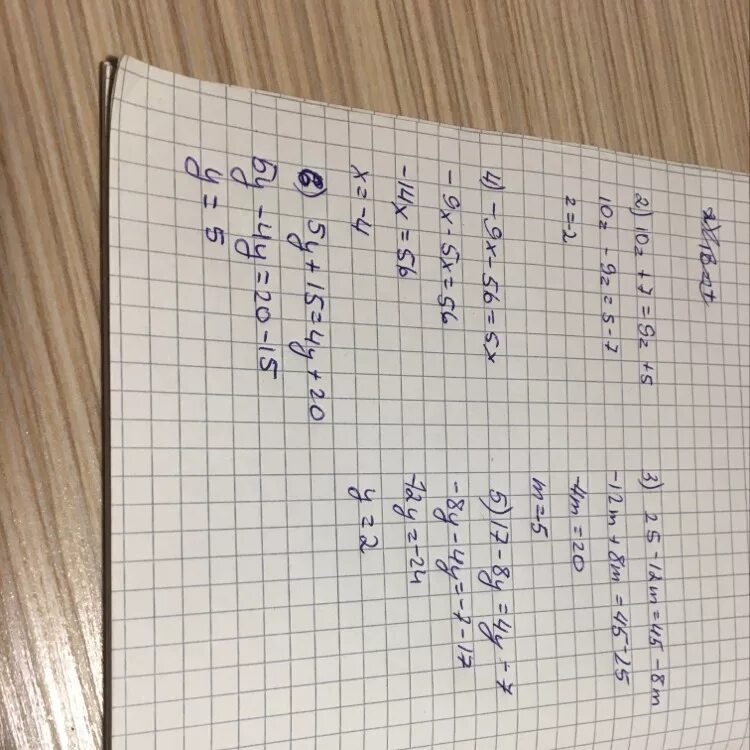 2) 10z + 7 = 9z + 5
10z - 9z = 5 - 7
z = -2
3) 25 - 12m = 45 - 8m
-12m + 8m = 45 - 25
-4m = 20
m = -5
4) -9x - 56 = 5x
-9x - 5x = 56
-14x = 56
x = -4
5) 17 - 8y = 4y - 7
-8y - 4y = -7 - 17
-12y = -24
y = 2
6) 5y + 15 = 4y + 20
5y - 4y = 20 - 15
y = 5